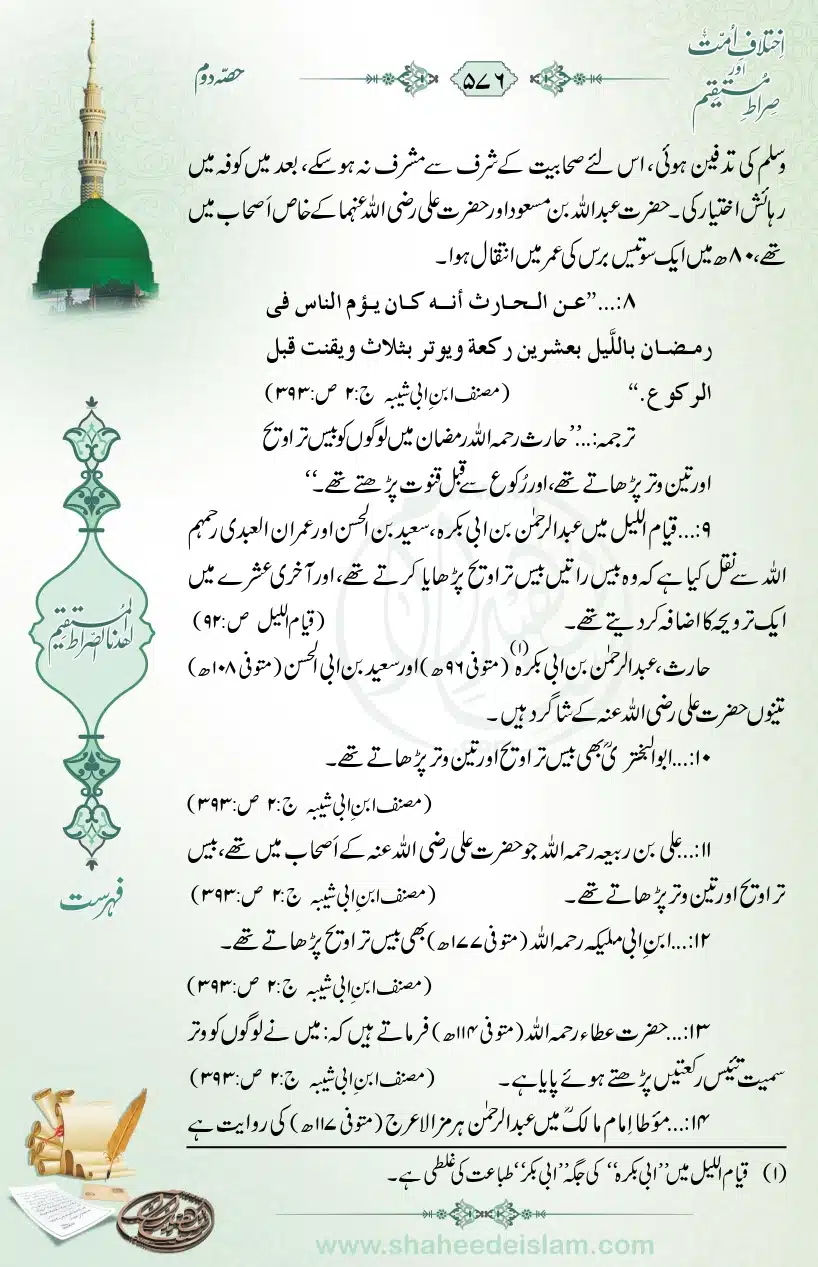 اِختلافِ اُمّت
اور
صراطِ مُستقیم
۵۷۶
حصّہ دوم
وسلم کی تدفین ہوئی، اس لئے صحابیت کے شرف سے مشرف نہ ہوسکے، بعد میں کوفہ میں
رہائش اختیار کی۔ حضرت عبداللہ بن مسعود اور حضرت علی رضی اللہ عنہما کے خاص اَصحاب میں
تھے، ۸۰ھ میں ایک سو تیس برس کی عمر میں انتقال ہوا۔
۸:...”عن الحارث أنه كان يؤم الناس فى
رمضان باللَّيل بعشرين ركعة ويوتر بثلاث ويقنت قبل
الركوع.“ (مصنف ابنِ ابی شیبہ ج:۲ ص:۳۹۳)
ترجمہ:...’’حارث رحمہ اللہ رمضان میں لوگوں کو بیس تراویح
اور تین وتر پڑھاتے تھے، اور رُکوع سے قبل قنوت پڑھتے تھے۔‘‘
۹:...قیام اللیل میں عبدالرحمٰن بن ابی بکرہ، سعید بن الحسن اور عمران العبدی رحمہم
اللہ سے نقل کیا ہے کہ وہ بیس راتیں بیس تراویح پڑھایا کرتے تھے، اور آخری عشرے میں
ایک ترویحہ کا اضافہ کردیتے تھے۔ (قیام اللیل ص:۹۲)
حارث، عبدالرحمٰن بن ابی بکرہ(۱) (متوفی ۹۶ھ) اور سعید بن ابی الحسن (متوفی ۱۰۸ھ)
تینوں حضرت علی رضی اللہ عنہ کے شاگرد ہیں۔
۱۰:...ابوالبختریؒ بھی بیس تراویح اور تین وتر پڑھاتے تھے۔
(مصنف ابنِ ابی شیبہ ج:۲ ص:۳۹۳)
۱۱:...علی بن ربیعہ رحمہ اللہ جو حضرت علی رضی اللہ عنہ کے اَصحاب میں تھے، بیس
تراویح اور تین وتر پڑھاتے تھے۔ (مصنف ابنِ ابی شیبہ ج:۲ ص:۳۹۳)
۱۲:...ابنِ ابی ملیکہ رحمہ اللہ (متوفی ۱۷۷ھ) بھی بیس تراویح پڑھاتے تھے۔
(مصنف ابنِ ابی شیبہ ج:۲ ص:۳۹۳)
۱۳:...حضرت عطاء رحمہ اللہ (متوفی ۱۱۴ھ) فرماتے ہیں کہ: میں نے لوگوں کو وتر
سمیت تئیس رکعتیں پڑھتے ہوئے پایا ہے۔ (مصنف ابنِ ابی شیبہ ج:۲ ص:۳۹۳)
۱۴:...مؤطا اِمام مالکؒ میں عبدالرحمٰن ہرمز الاعرج (متوفی ۱۱۷ھ) کی روایت ہے
(۱) قیام اللیل میں ’’ابی بکرہ‘‘ کی جگہ ’’ابی بکر‘‘ طباعت کی غلطی ہے۔
اهدنا الصراط المستقيم
فہرست
www.shaheedeislam.com